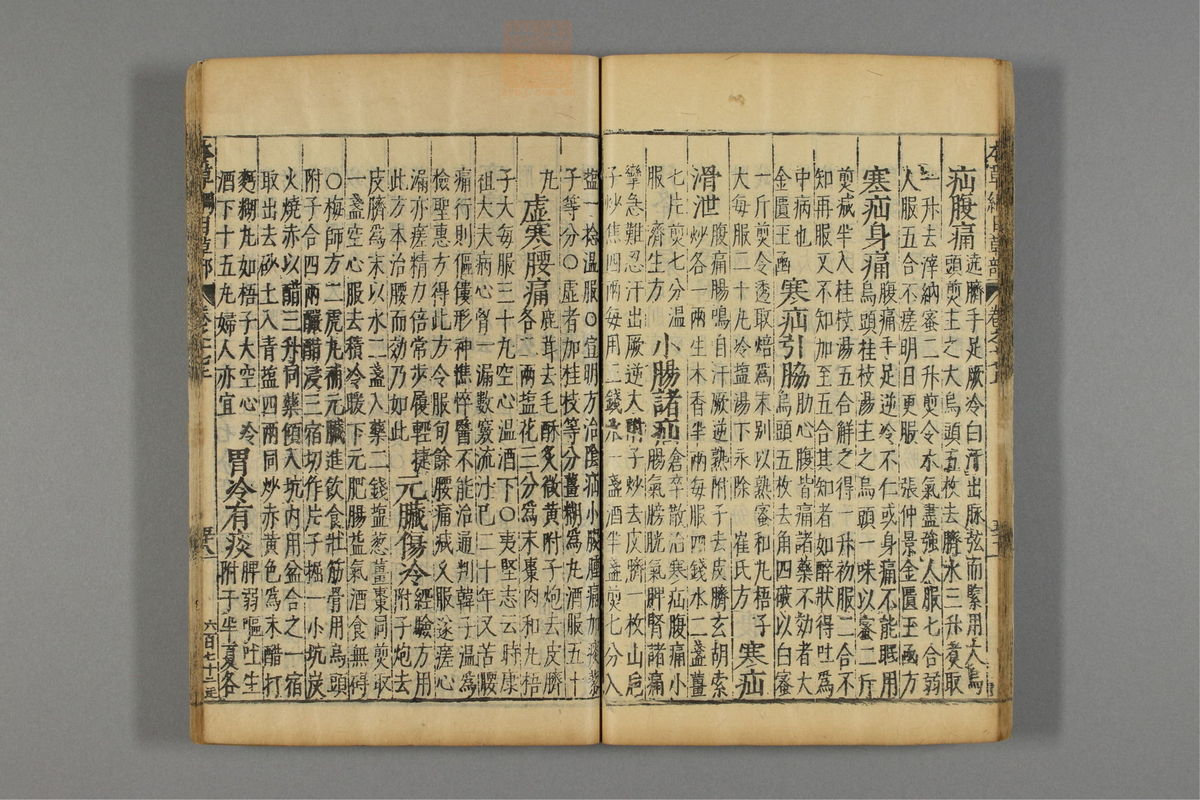 本草綱目草部 卷之十七
疝腹痛 遶臍手足厥冷白汗出脉弦而緊用大烏
頭煎主之大烏頭五枚去臍水三升煮取
一升去滓納蜜二升煎令水氣盡強人服七合弱
人服五合不瘥明日更服 張仲景金匱玉函方
寒疝身痛 腹痛手足逆冷不仁或身痛不能眠用
烏頭桂枝湯主之烏頭一味以蜜二斤
煎减半入桂枝湯五合解之得一升初服二合不
知再服又不知加至五合其知者如醉狀得吐爲
中病也
金匱玉函
寒疝引脇 肋心腹皆痛諸藥不効者大
烏頭五枚去角四破以白蜜
一斤煎令透取焙爲末別以熟蜜和丸梧子
大每服二十丸冷鹽湯下永除 崔氏方
寒疝
滑泄 腹痛腸鳴自汗厥逆熟附子去皮臍玄胡索
炒各一兩生木香半兩每服四錢水二盞薑
七片煎七分温
服 濟生方
小腸諸疝 倉卒散治寒疝腹痛小
腸氣膀胱氣脾腎諸痛
攣急難忍汗出厥逆大附子炒去皮臍一枚山梔
子炒焦四兩每用二錢水一盞酒半盞煎七分入
鹽一捻温服○宣明方治陰疝小腹腫痛加蒺藜
子等分○虛者加桂枝等分薑糊爲丸酒服五十
丸
虛寒腰痛 鹿茸去毛酥炙微黃附子炮去皮臍
各二兩鹽花三分爲末棗肉和丸梧
子大每服三十丸空心温酒下○夷堅志云時康
祖大夫病心胷一漏數竅流汁已二十年又苦腰
痛行則傴僂形神憔悴醫不能治通判韓子温爲
檢聖惠方得此方令服旬餘腰痛减久服遂瘥心
漏亦瘥精力倍常歩履輕捷
此方本治腰而効乃如此
元臟傷冷 經驗方用
附子炮去
皮臍爲末以水二盞入藥二錢鹽葱薑棗同煎取
一盞空心服去積冷暖下元肥腸益氣酒食無碍
○梅師方二虎丸補元臟進飲食壯筋骨用烏頭
附子合四兩釅醋浸三宿切作片子掘一小坑炭
火燒赤以醋三升同藥傾入坑内用盆合之一宿
取出去砂土入青鹽四兩同炒赤黃色爲末醋打
麪糊丸如梧子大空心冷
酒下十五丸婦人亦宜
胃冷有痰 脾弱嘔吐生
附子半夏各
本草綱目草部 卷之十七